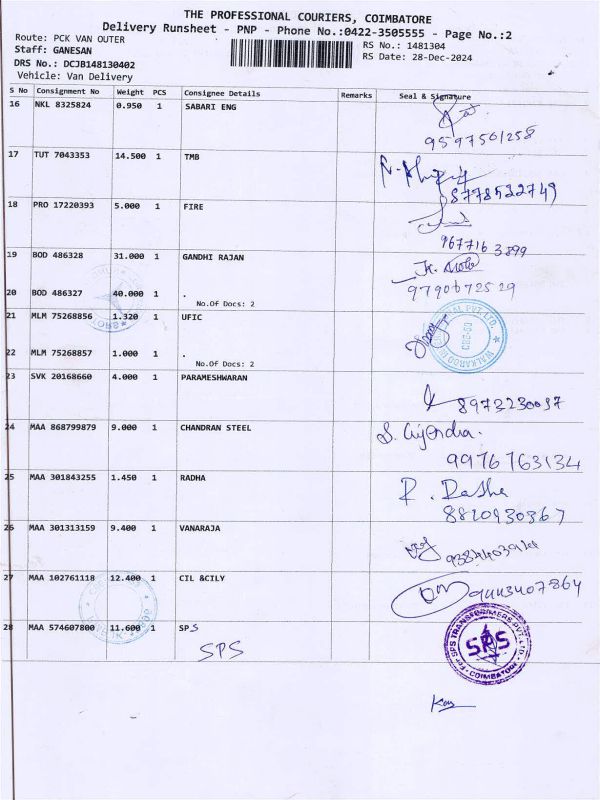 THE PROFESSIONAL COURIERS, COIMBATORE
Delivery Runsheet - PNP - Phone No.:0422-3505555 - Page No.:2
Route: PCK VAN OUTER
Staff: GANESAN
DRS No.: DCJB148130402
Vehicle: Van Delivery
RS No.: 1481304
RS Date: 28-Dec-2024
S No Consignment No Weight PCS Consignee Details Remarks Seal & Signature
16 NKL 8325824 0.950 1 SABARI ENG
9597501258
17 TUT 7043353 14.500 1 TMB
8778532749
18 PRO 17220393 5.000 1 FIRE
967716 3899
19 BOD 486328 31.000 1 GANDHI RAJAN
9790672529
20 BOD 486327 40.000 1 .
No.Of Docs: 2
21 MLM 75268856 1.320 1 UFIC
CBE-60
22 MLM 75268857 1.000 1 .
No.Of Docs: 2
23 SVK 20168660 4.000 1 PARAMESHWARAN
24 MAA 868799879 9.000 1 CHANDRAN STEEL
9976763134
25 MAA 301843255 1.450 1 RADHA
R. Radha
8810930367
26 MAA 301313159 9.400 1 VANARAJA
27 MAA 102761118 12.400 1 CIL &CILY
9443407864
28 MAA 574607800 11.600 1 SPS
SPS
For SPS TRANSFORMERS PVT. LTD.
SPS
COIMBATORE